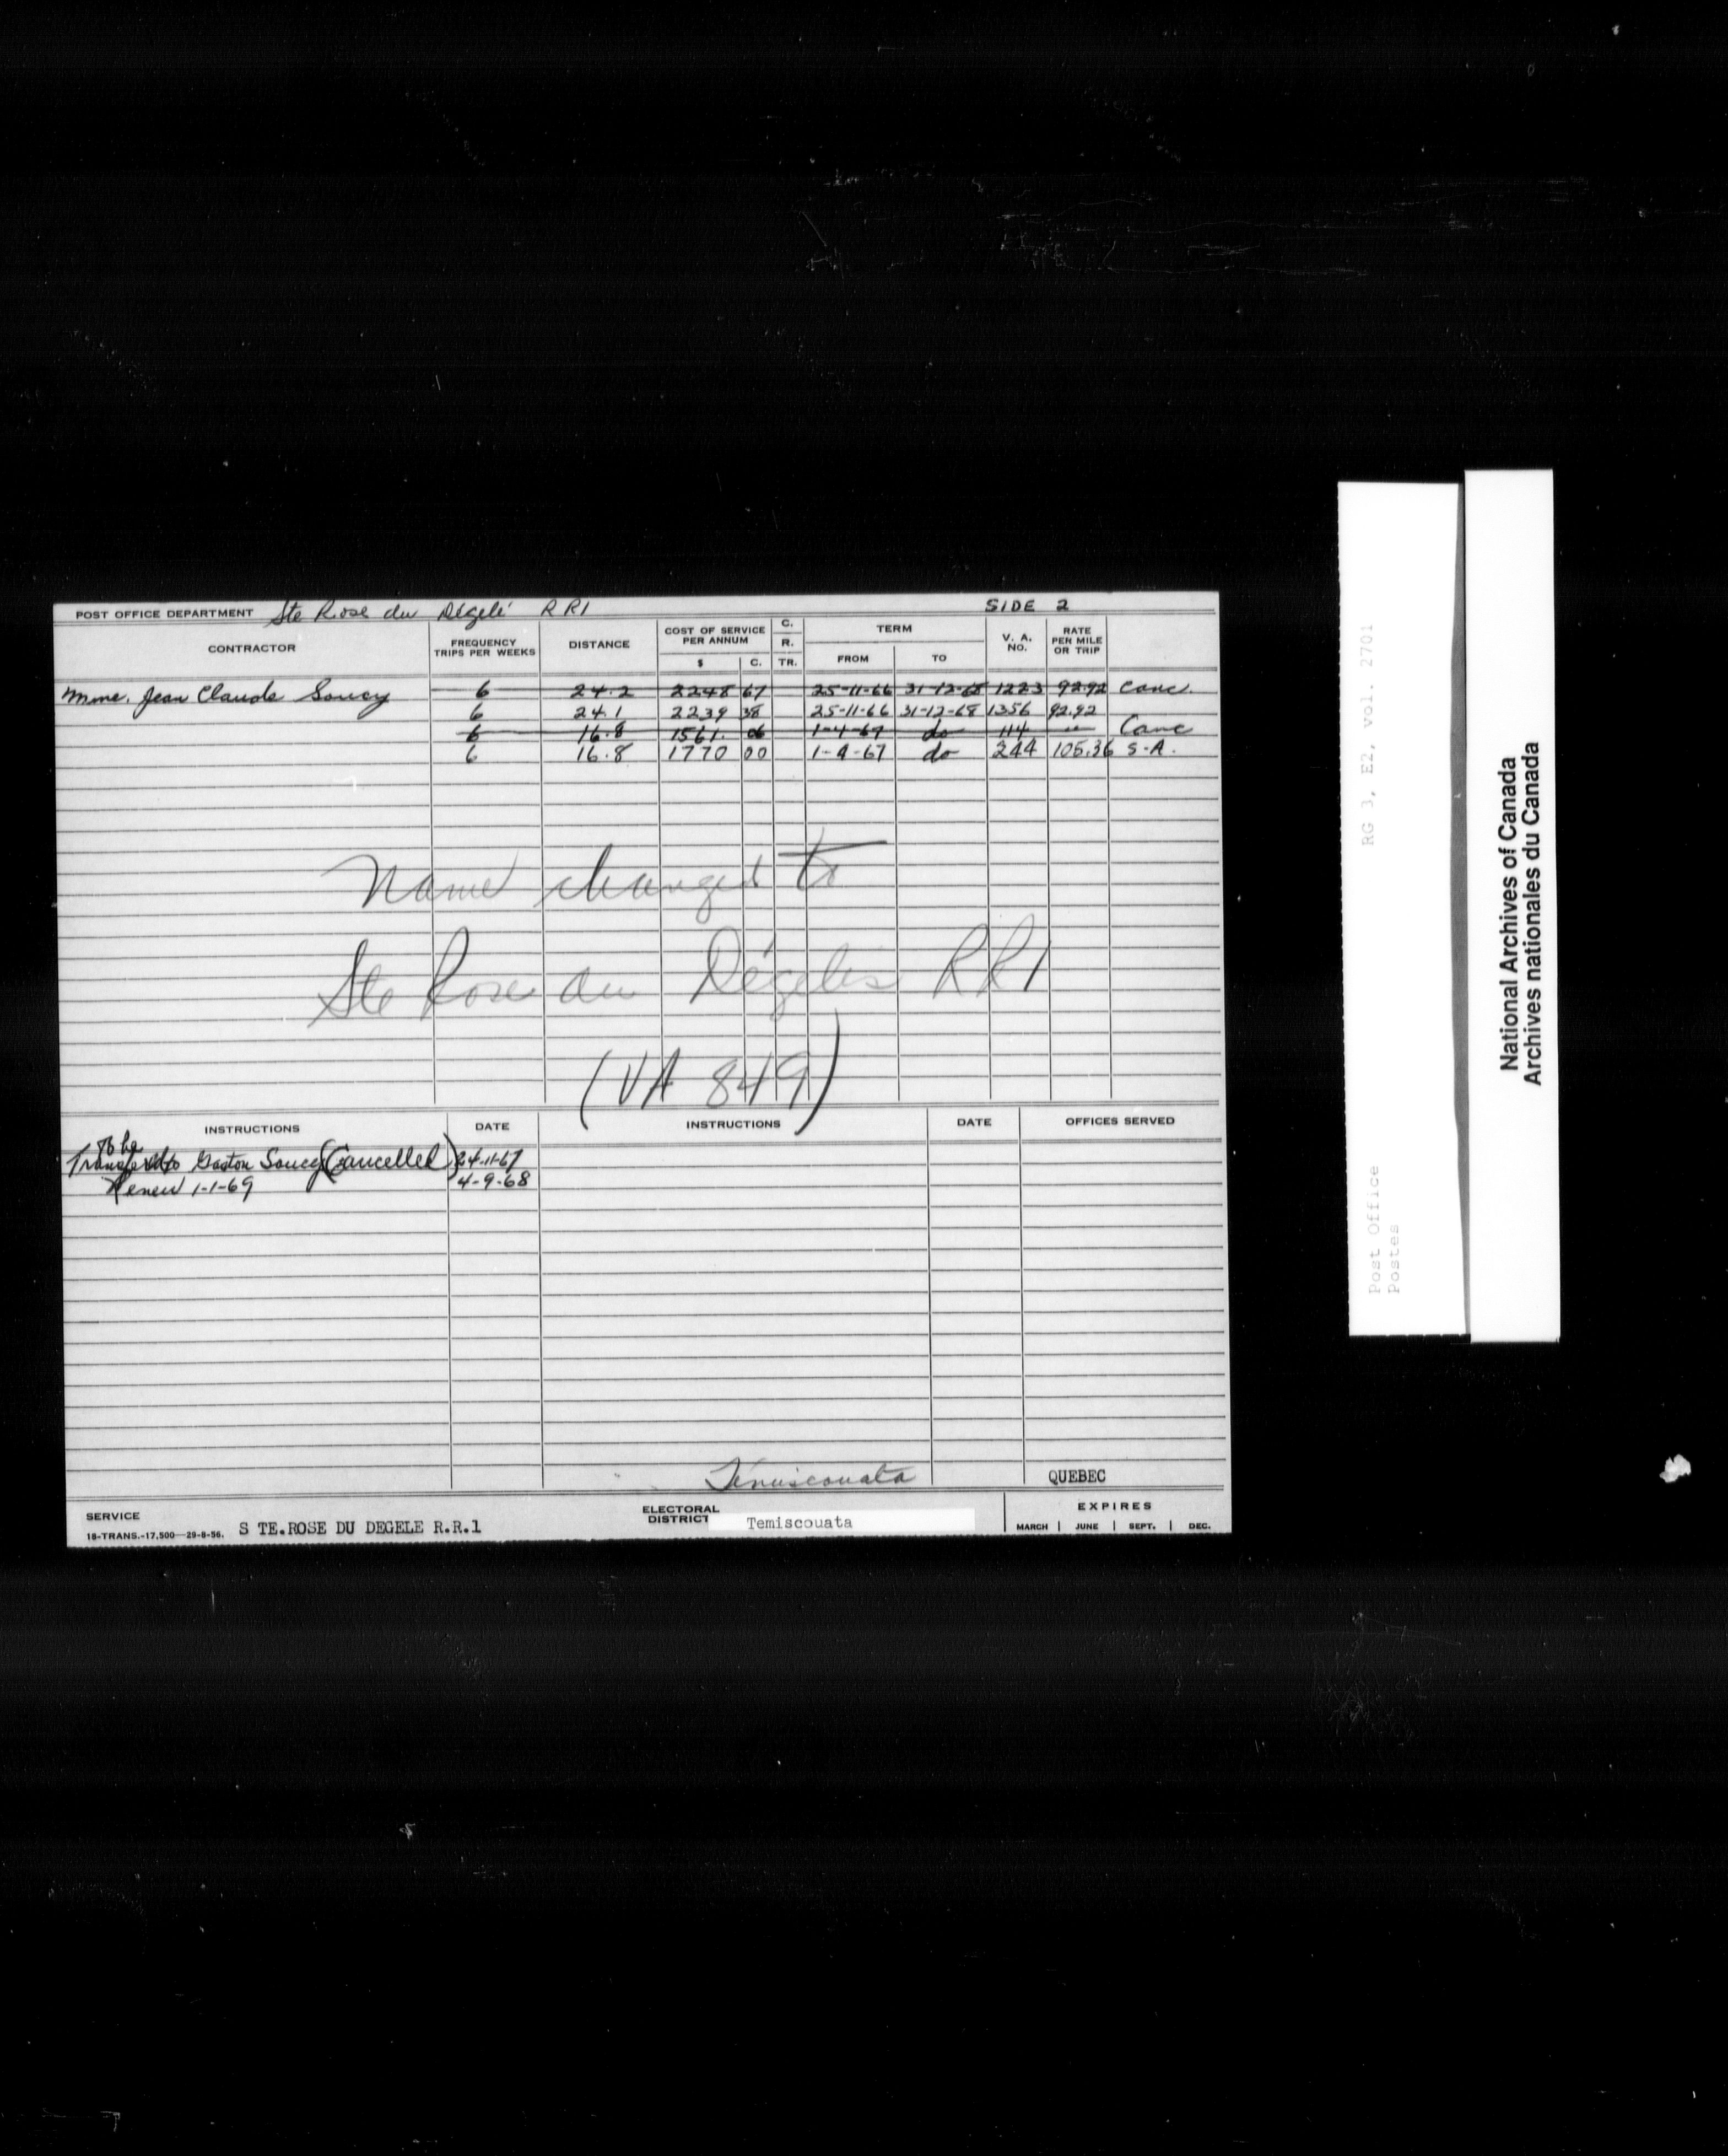 POST OFFICE DEPARTMENT Ste Rose du Dégelé RR1 SIDE 2
CONTRACTOR FREQUENCY TRIPS PER WEEKS DISTANCE COST OF SERVICE PER ANNUM $ C. C. R. TR. TERM FROM TO V. A. NO. RATE PER MILE OR TRIP
Mme. Jean Claude Soucy 6 24.2 2248 67 25-11-66 31-12-68 1223 92.92 Canc.
6 24.1 2239 38 25-11-66 31-12-68 1356 92.92
6 16.8 1561. 06 1-4-67 do 114 Canc
6 16.8 1770 00 1-4-67 do 244 105.36 S-A.
Name changed to
Ste Rose du Dégelis RR1
(VA 849)
INSTRUCTIONS DATE INSTRUCTIONS DATE OFFICES SERVED
To be
Transfer to Gaston Soucy (Cancelled) 24-11-67
Renew 1-1-69 4-9-68
Témiscouata QUEBEC
SERVICE ELECTORAL DISTRICT EXPIRES
18-TRANS.-17,500—29-8-56. S TE.ROSE DU DEGELE R.R.1 Temiscouata MARCH | JUNE | SEPT. | DEC.
RG 3, E2, vol. 2701
Post Office
Postes
National Archives of Canada
Archives nationales du Canada